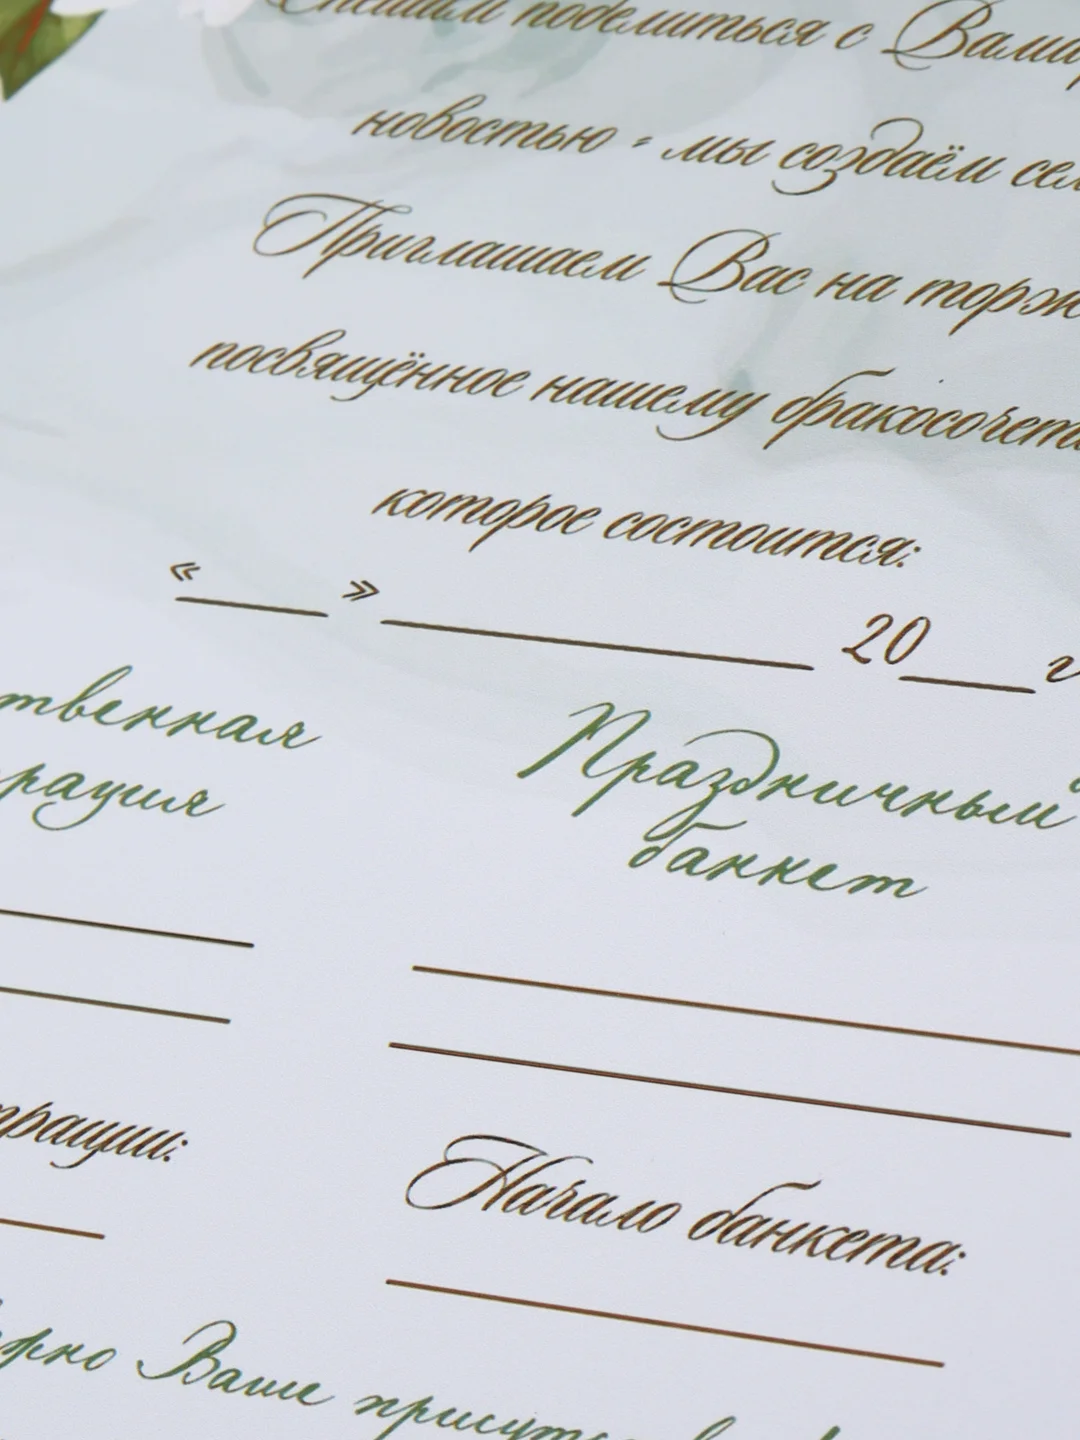 Спешим поделиться с Вами
новостью - мы создаём сем
Приглашаем Вас на торж
посвящённое нашему бракосочета
которое состоится:
«____» ____________ 20____ г
твенная
рация
Праздничный
банкет
трации:
Начало банкета:
ерно Ваше присутс